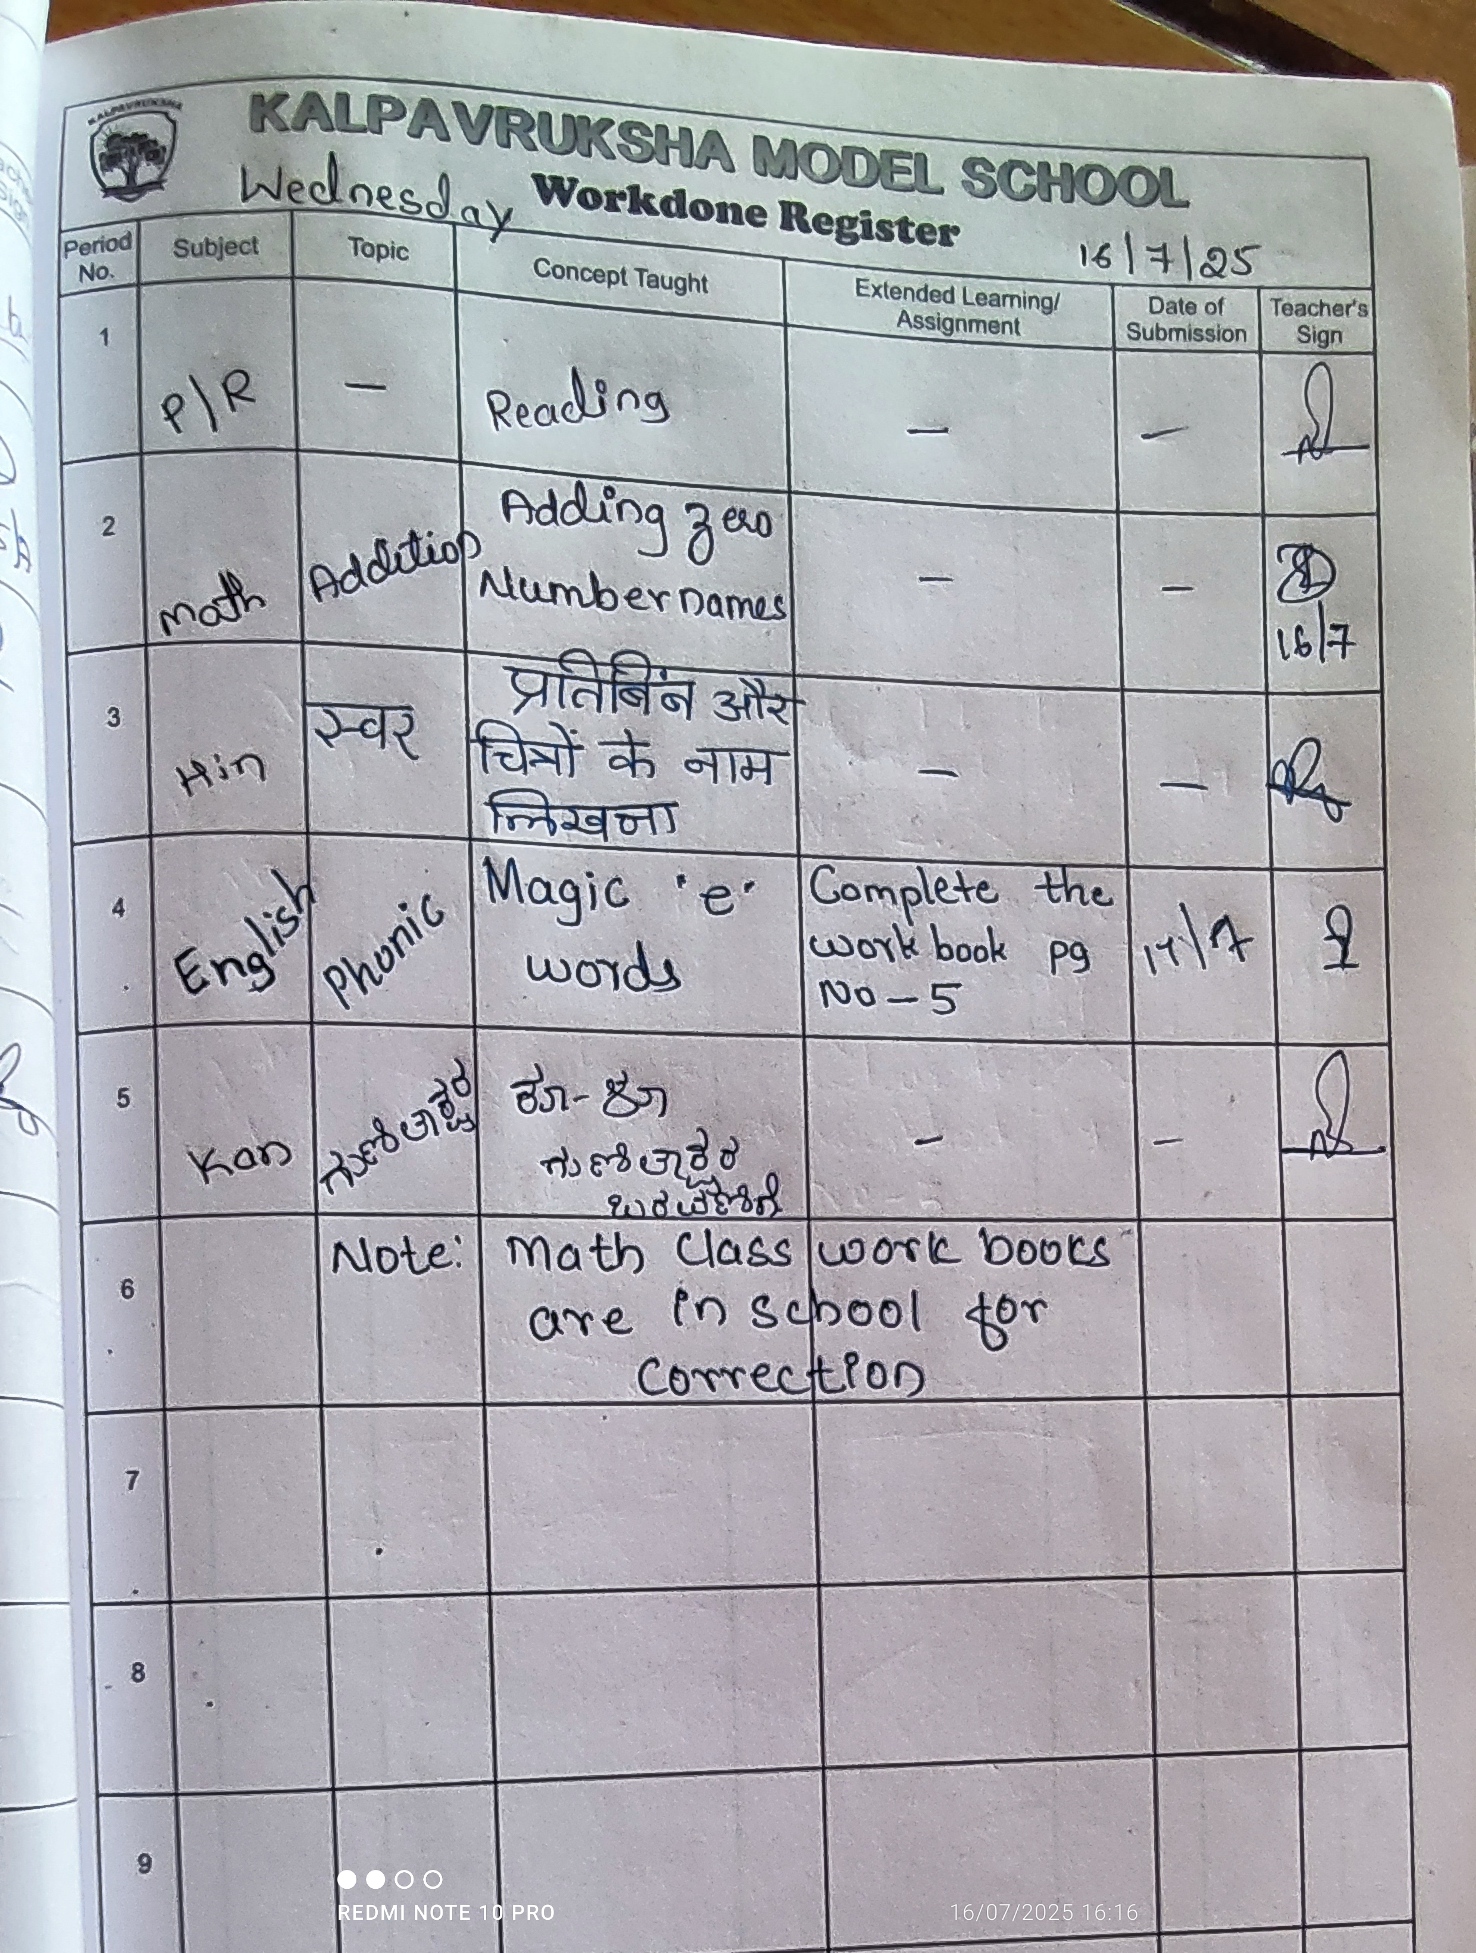 KALPAVRUKSHA
KALPAVRUKSHA MODEL SCHOOL
Wednesday Workdone Register
16/7/25
Period No. Subject Topic Concept Taught Extended Learning/ Assignment Date of Submission Teacher's Sign
1 P/R — Reading — —
2 Math Addition Adding zero — —
Number names
16/7
3 Hin स्वर प्रतिबिंन और — —
चित्रों के नाम
लिखना
4 English Phonic Magic 'e' Complete the 17/7
words work book pg
No - 5
5 Kan ಗುಣಿತಾಕ್ಷರ — —
ಗುಣಿತಾಕ್ಷರ
6 Note: Math Class work books
are in school for
correction
7
8
9
REDMI NOTE 10 PRO 16/07/2025 16:16